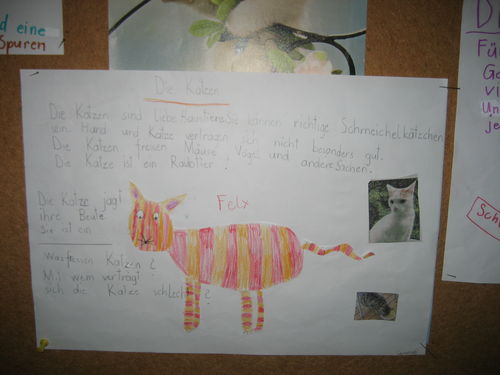 d eine
Spuren
Die Katzen
Die Katzen sind liebe Haustiere. Sie können richtige Schmeichelkätzchen
sein. Hund und Katze vertragen sich nicht besonders gut.
Die Katzen fressen Mäuse Vögel und andere Sachen.
Die Katze ist ein Raubtier!
Die Katze jagt
ihre Beute.
Sie ist ein
Felix
Was fressen Katzen?
Mit wem verträgt
sich die Katze schlecht?
D
Fü
Ge
vi
Un
je
Sch